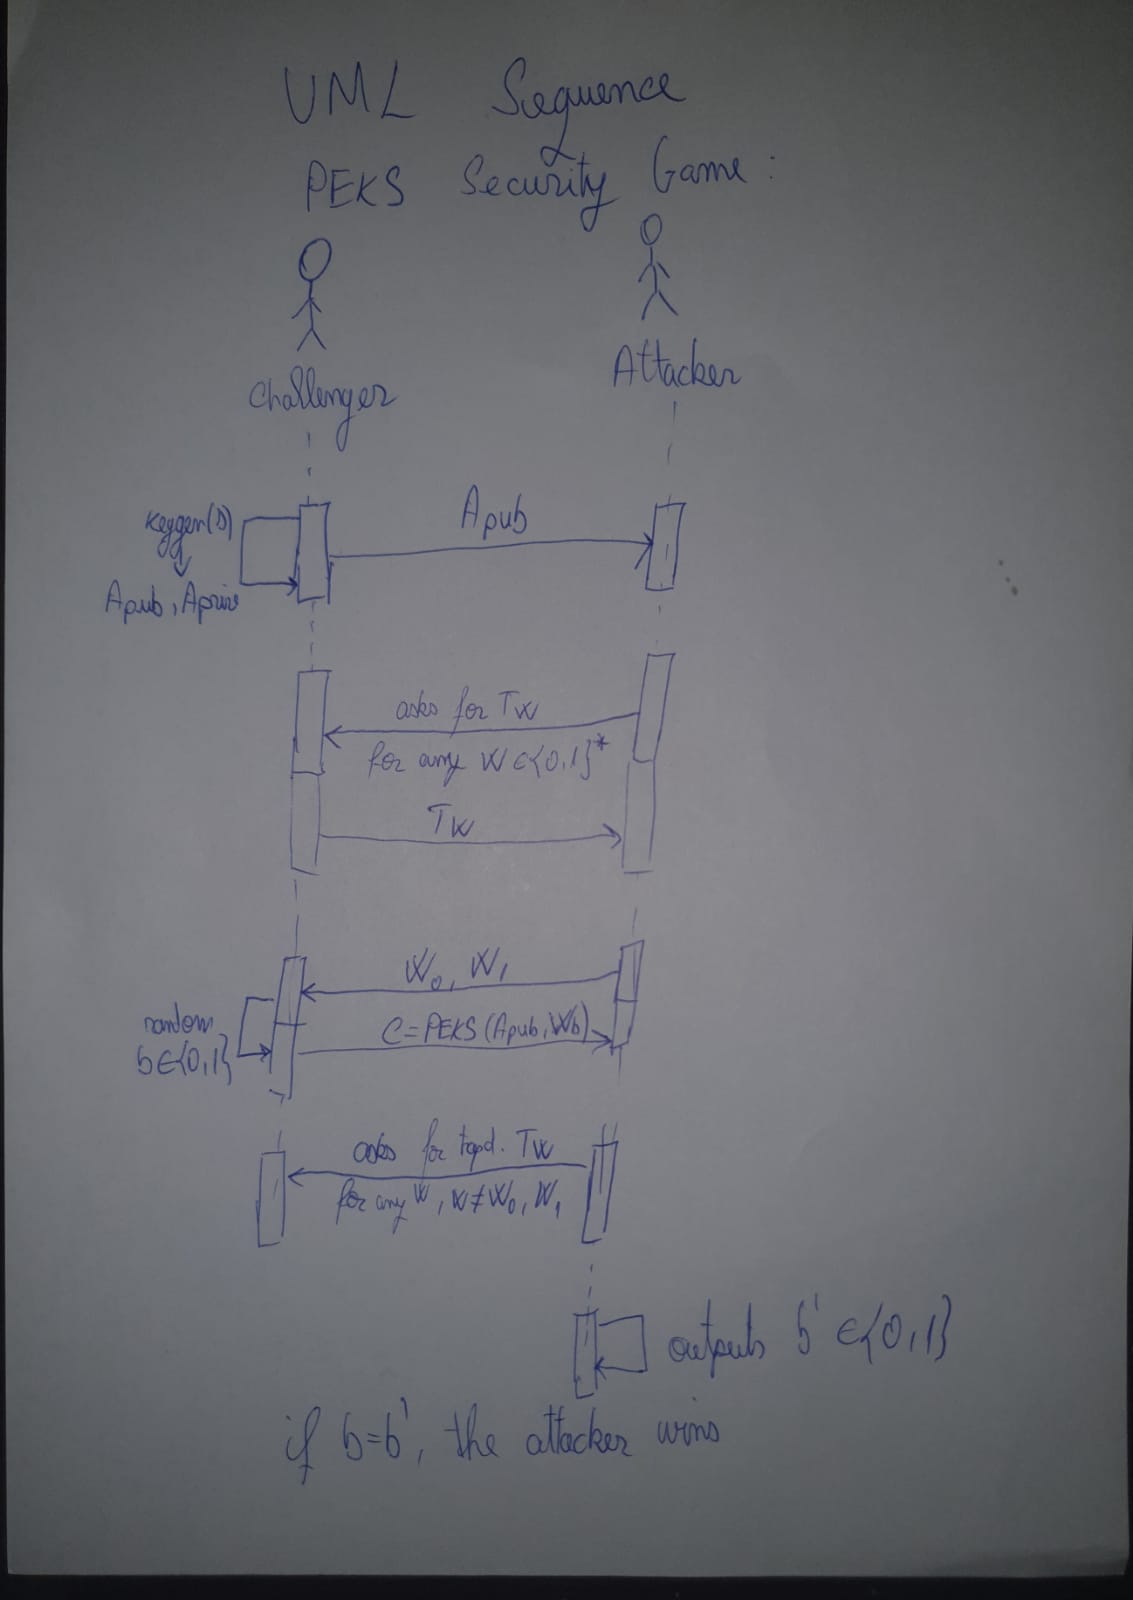 UML Sequence
PEKS Security Game:
Challenger
Attacker
Keygen(s)
Apub, Apriv
Apub
asks for Tw
for any W ∈ {0,1}*
Tw
W₀, W₁
random
b∈{0,1}
C=PEKS(Apub, Wb)
asks for tapd. Tw
for any W, W≠W₀, W₁
outputs b' ∈{0,1}
if b=b', the attacker wins